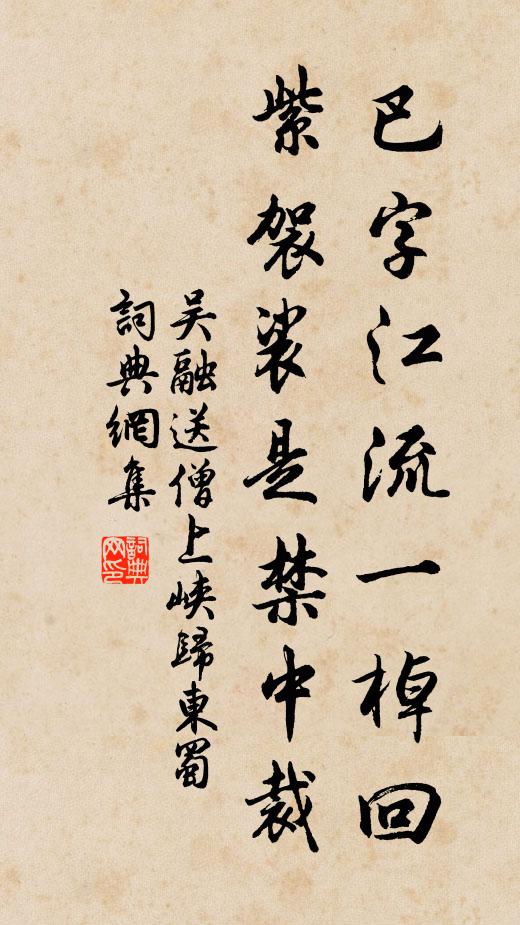 巴字江流一棹回
紫袈裟是禁中裁
吳融送僧上峽歸東蜀
詞典網集
詞典網印